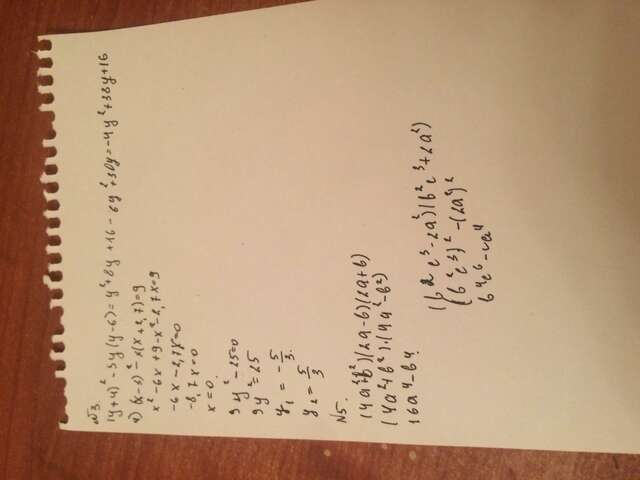 №3.
(y+4)² - 5y(y-6) = y²+8y+16 - 5y²+30y = -4y²+38y+16
4) (x-3)² - x(x+2,7)=9
x²-6x+9-x²-2,7x=9
-6x-2,7x=0
-8,7x=0
x=0.
9y²-25=0
9y²=25
y₁ = -5/3.
y₂ = 5/3
№5.
(4a²+b²)(2a-b)(2a+b)
(4a²+b²)·(4a²-b²)
16a⁴-b⁴.
(b²c³-2a²)(b²c³+2a²)
(b²c³)²-(2a²)²